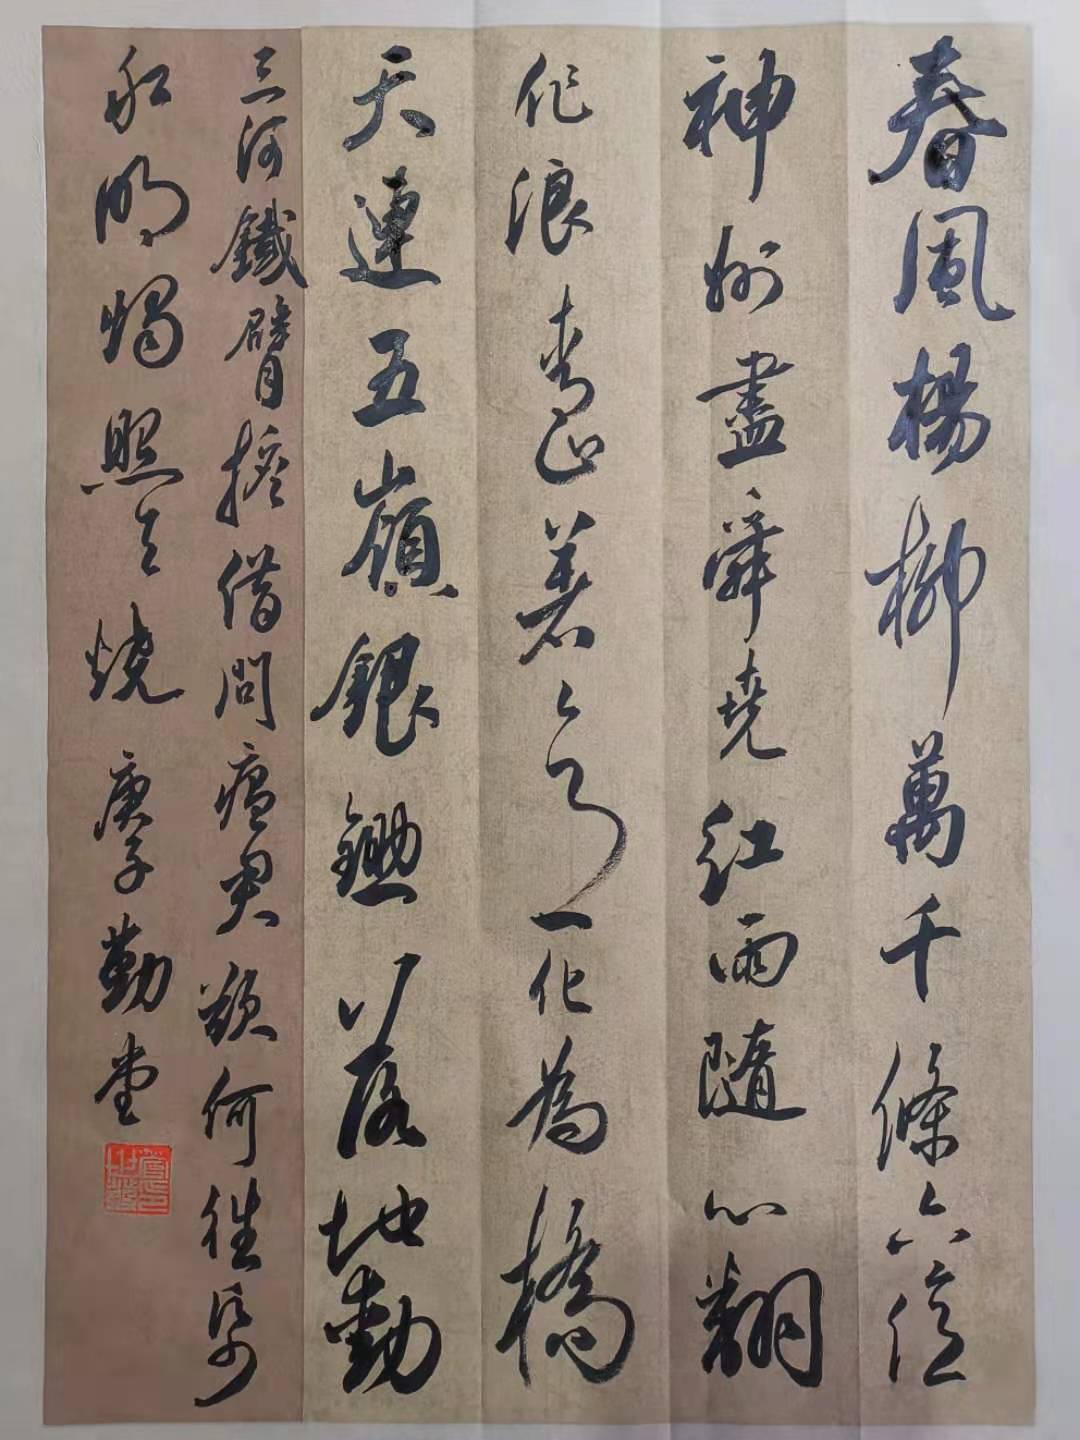 春風楊柳萬千條六億
神州盡舜堯紅雨隨心翻
作浪青山著意化為橋
天連五嶺銀鋤落地動
三河鐵臂搖借問瘟君欲何往紙
船明燭照天燒庚子勤堂